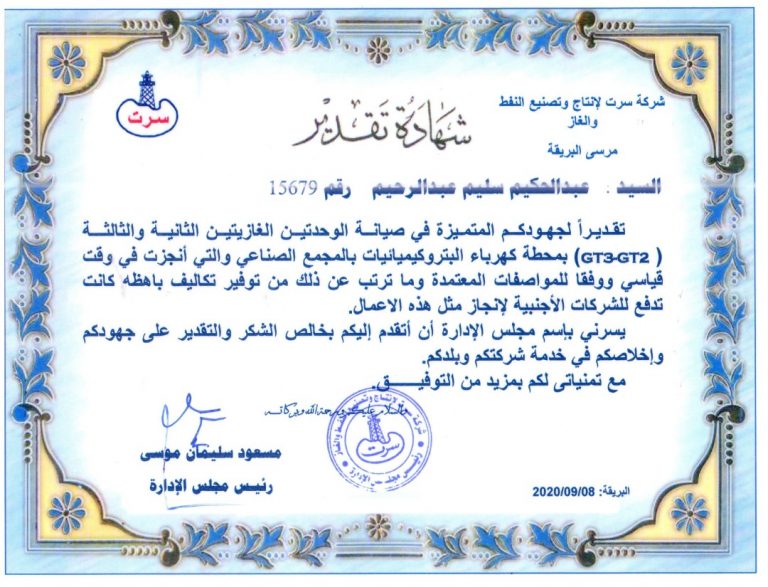 شركة سرت لإنتاج وتصنيع النفط
والغاز
مرسى البريقة
سرت
شهادة تقدير
السيد : عبدالحكيم سليم عبدالرحيم رقم 15679
تقديراً لجهودكم المتميزة في صيانة الوحدتين الغازيتين الثانية والثالثة
( GT3-GT2) بمحطة كهرباء البتروكيميائيات بالمجمع الصناعي والتي أنجزت في وقت
قياسي ووفقا للمواصفات المعتمدة وما ترتب عن ذلك من توفير تكاليف باهظه كانت
تدفع للشركات الأجنبية لإنجاز مثل هذه الاعمال.
يسرني بإسم مجلس الإدارة أن أتقدم إليكم بخالص الشكر والتقدير على جهودكم
وإخلاصكم في خدمة شركتكم وبلدكم.
مع تمنياتى لكم بمزيد من التوفيق.
والسلام عليكم ورحمة الله وبركاته
شركة سرت لإنتاج وتصنيع النفط والغاز
سرت
رئيس مجلس الإدارة
مسعود سليمان موسى
رئيس مجلس الإدارة
البريقة: 2020/09/08